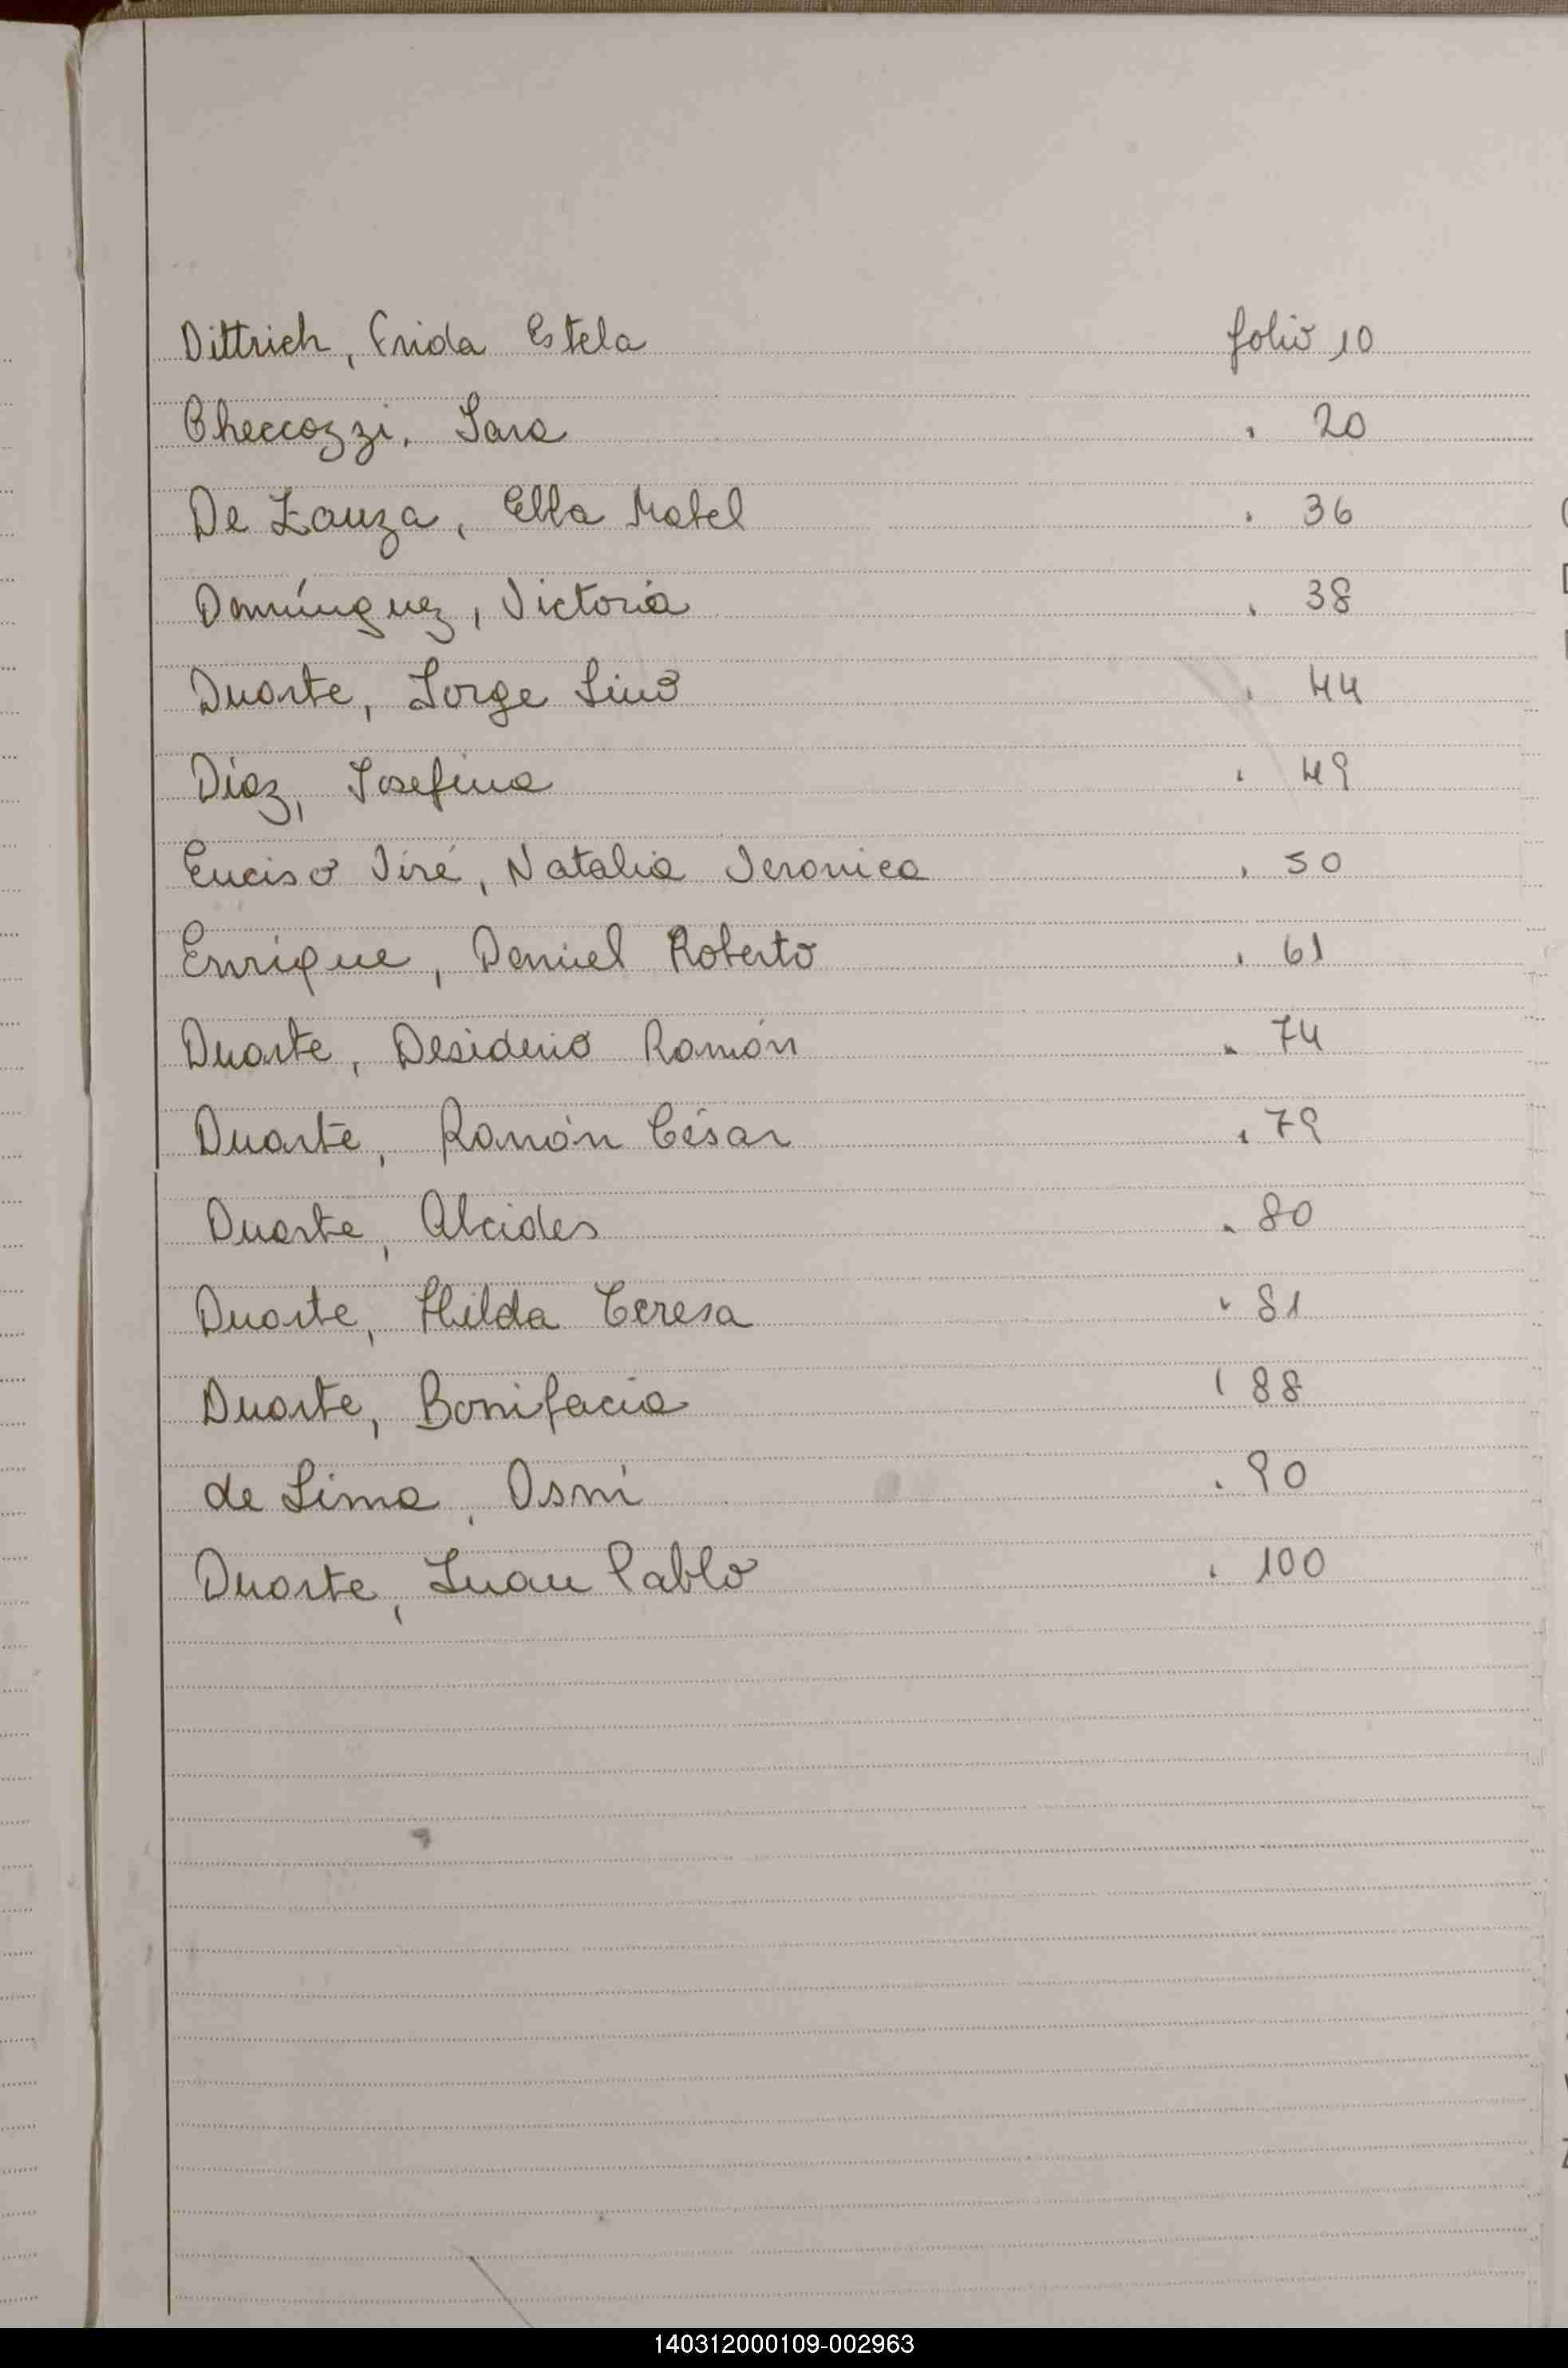 Dittrich, Frida Estela folio 10
Checcozzi, Sara " 20
De Zauza, Elba Mabel " 36
Domínguez, Victoria " 38
Duarte, Jorge Lino " 44
Díaz, Josefina " 49
Enciso Viré, Natalia Veronica " 50
Enrique, Daniel Roberto " 61
Duarte, Desiderio Ramón " 74
Duarte, Ramón César " 79
Duarte, Alcides " 80
Duarte, Hilda Teresa " 81
Duarte, Bonifacia " 88
de Lima, Osni " 90
Duarte, Juan Pablo " 100
140312000109-002963